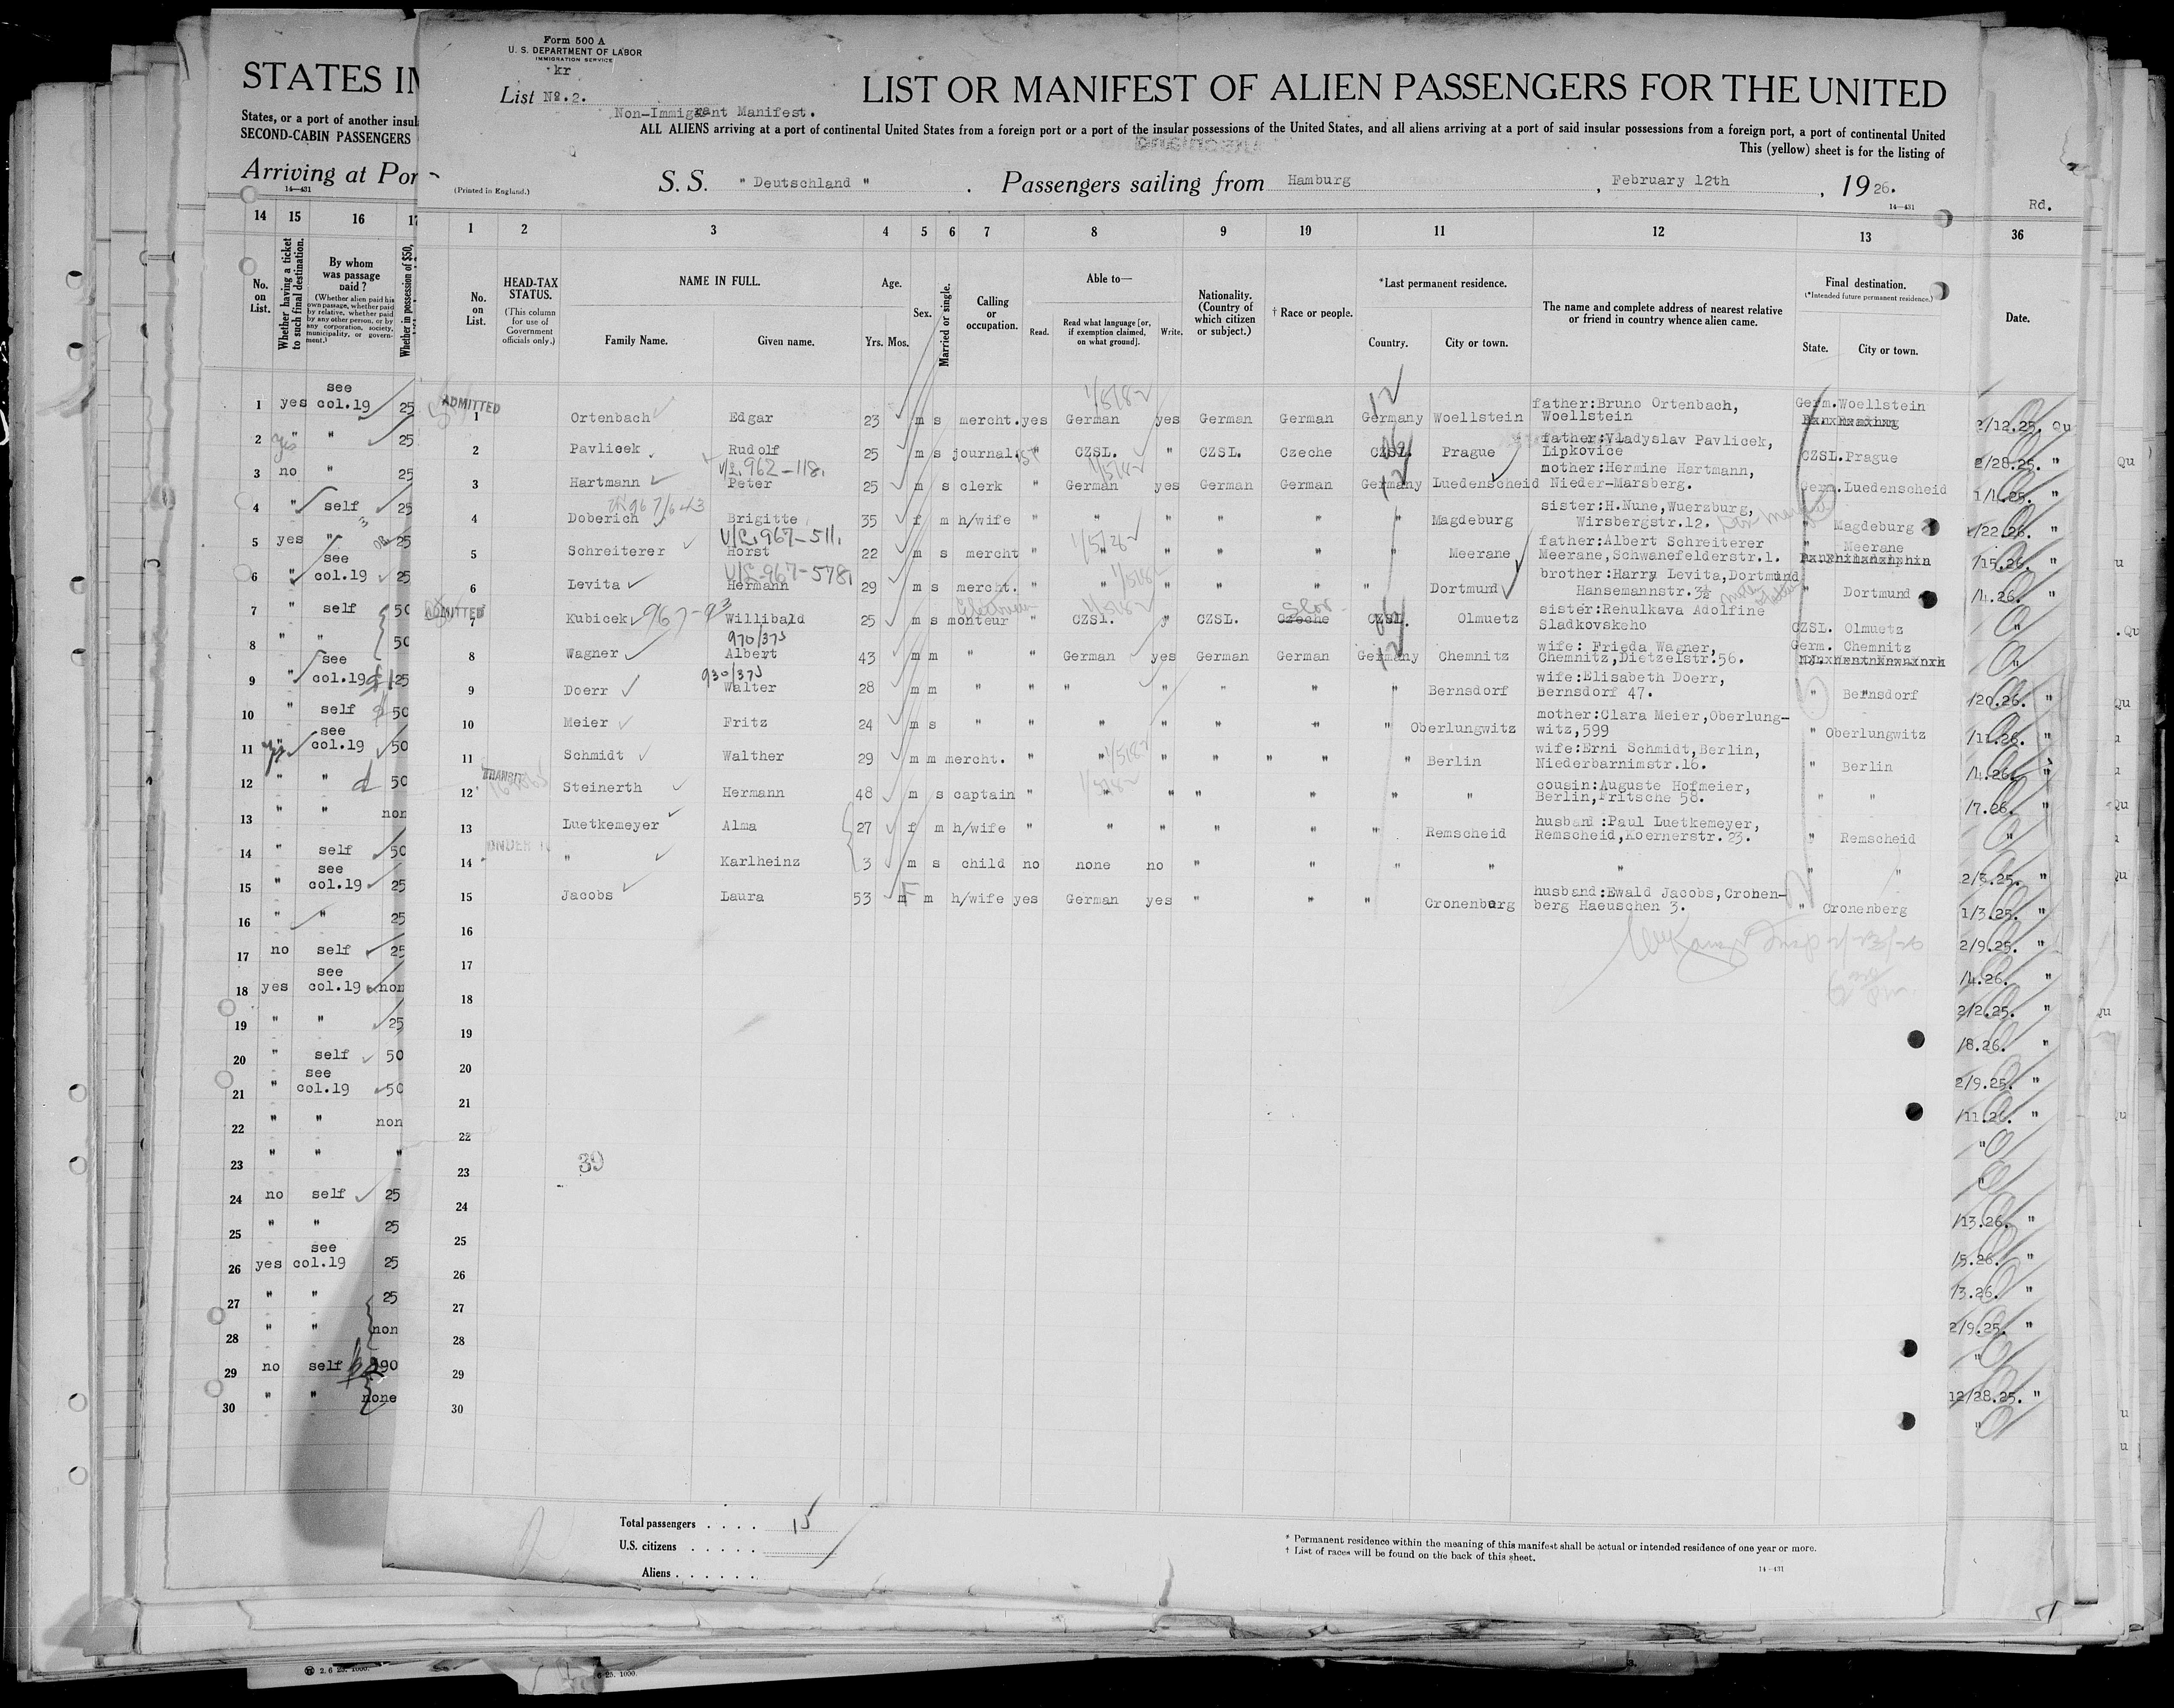 Form 500 A
U. S. DEPARTMENT OF LABOR
IMMIGRATION SERVICE
kr
List No. 2.
Non-Immigrant Manifest.
LIST OR MANIFEST OF ALIEN PASSENGERS FOR THE UNITED
ALL ALIENS arriving at a port of continental United States from a foreign port or a port of the insular possessions of the United States, and all aliens arriving at a port of said insular possessions from a foreign port, a port of continental United
This (yellow) sheet is for the listing of
(Printed in England.)
S. S. "Deutschland". Passengers sailing from Hamburg, February 12th, 1926.
14—431
Rd.
STATES IM
States, or a port of another insul
SECOND-CABIN PASSENGERS
Arriving at Por
14—431
14 15 16 17
No. on List.
Whether having a ticket to such final destination.
By whom was passage paid?
(Whether alien paid his own passage, whether paid by relative, whether paid by any other person, or by any corporation, society, municipality, or government.)
Whether in possession of $50,
1 yes see col.19 25
2 " " 25
3 no " 25
4 " self 25
5 yes " 25
6 " see col.19 25
7 " self 50
8 " " 50
9 " see col.19 25
10 " self 50
11 " see col.19 50
12 " " 50
13 " " non
14 " self 50
15 " see col.19 25
16 " " 25
17 no self 25
18 yes see col.19 non
19 " " 25
20 " self 50
21 " see col.19 50
22 " " non
23 " " "
24 no self 25
25 " " 25
26 yes see col.19 25
27 " " 25
28 " " non
29 no self 190
30 " " none
1 2 3 4 5 6 7 8 9 10 11 12 13 36
No. on List.
HEAD-TAX STATUS.
(This column for use of Government officials only.)
NAME IN FULL.
Family Name. Given name.
Age.
Yrs. Mos.
Sex.
Married or single.
Calling or occupation.
Able to—
Read. Read what language [or, if exemption claimed, on what ground]. Write.
Nationality. (Country of which citizen or subject.)
† Race or people.
*Last permanent residence.
Country. City or town.
The name and complete address of nearest relative or friend in country whence alien came.
Final destination.
(*Intended future permanent residence.)
State. City or town.
Date.
ADMITTED
1 Ortenbach Edgar 23 m s mercht. yes German yes German German Germany Woellstein father:Bruno Ortenbach, Woellstein Germ. Woellstein
2 Pavlicek Rudolf 25 m s journal. " CZSL. " CZSL. Czeche CZSL. Prague father:Vladyslav Pavlicek, Lipkovice CZSL. Prague
V/L 962-118.
3 Hartmann Peter 25 m s clerk " German yes German German Germany Luedenscheid mother:Hermine Hartmann, Nieder-Marsberg. Germ. Luedenscheid
4 Doberich Brigitte 35 f m h/wife " " " " " " Magdeburg sister:H.Nune, Wuerzburg, Wirsbergstr.12. " Magdeburg
V/L 967-511.
5 Schreiterer Horst 22 m s mercht " " " " " " Meerane father:Albert Schreiterer Meerane, Schwanefelderstr.1. " Meerane
V/L-967-578,
6 Levita Hermann 29 m s mercht. " " " " " " Dortmund brother:Harry Levita, Dortmund Hansemannstr.3½ " Dortmund
ADMITTED
7 Kubicek 967-93 Willibald 25 m s monteur " CZSl. " CZSL. Czeche CZSL. Olmuetz sister:Rehulkava Adolfine Sladkovskeho CZSL. Olmuetz
970/375
8 Wagner Albert 43 m m " " German yes German German Germany Chemnitz wife: Frieda Wagner, Chemnitz, Dietzelstr.56. Germ. Chemnitz
930/375
9 Doerr Walter 28 m m " " " " " " " Bernsdorf wife:Elisabeth Doerr, Bernsdorf 47. " Bernsdorf
10 Meier Fritz 24 m s " " " " " " " Oberlungwitz mother:Clara Meier, Oberlung-witz, 599 " Oberlungwitz
11 Schmidt Walther 29 m m mercht. " " " " " " Berlin wife:Erni Schmidt, Berlin, Niederbarnimstr.16. " Berlin
TRANSIT
12 Steinerth Hermann 48 m s captain " " " " " " " cousin:Auguste Hofmeier, Berlin, Fritsche 58. " "
13 Luetkemeyer Alma 27 f m h/wife " " " " " " Remscheid husband:Paul Luetkemeyer, Remscheid, Koernerstr. 23. " Remscheid
14 " Karlheinz 3 m s child no none no " " " " " " "
15 Jacobs Laura 53 F m h/wife yes German yes " " " Cronenburg husband:Ewald Jacobs, Cronen-berg Haeuschen 3. " Cronenberg
16
17
18
19
20
21
22
23
39
24
25
26
27
28
29
30
2/12.25. Qu
2/28.25. "
1/4.25. "
1/22.26. "
/15.26. "
/4.26. "
/20.26. "
/11.26. "
/4.26. "
/7.26. "
2/5.25. "
1/3.25. "
2/9.25. "
/4.26. "
2/2.25. "
/8.26. "
2/9.25. "
/11.26. "
/13.26. "
/5.26. "
/3.26. "
2/9.25. "
12/28.25. "
Total passengers . . . . 15
U.S. citizens . . . . .
Aliens . . . . . .
* Permanent residence within the meaning of this manifest shall be actual or intended residence of one year or more.
† List of races will be found on the back of this sheet.
14—431
2. 6 25. 1000.
6-25. 1000.